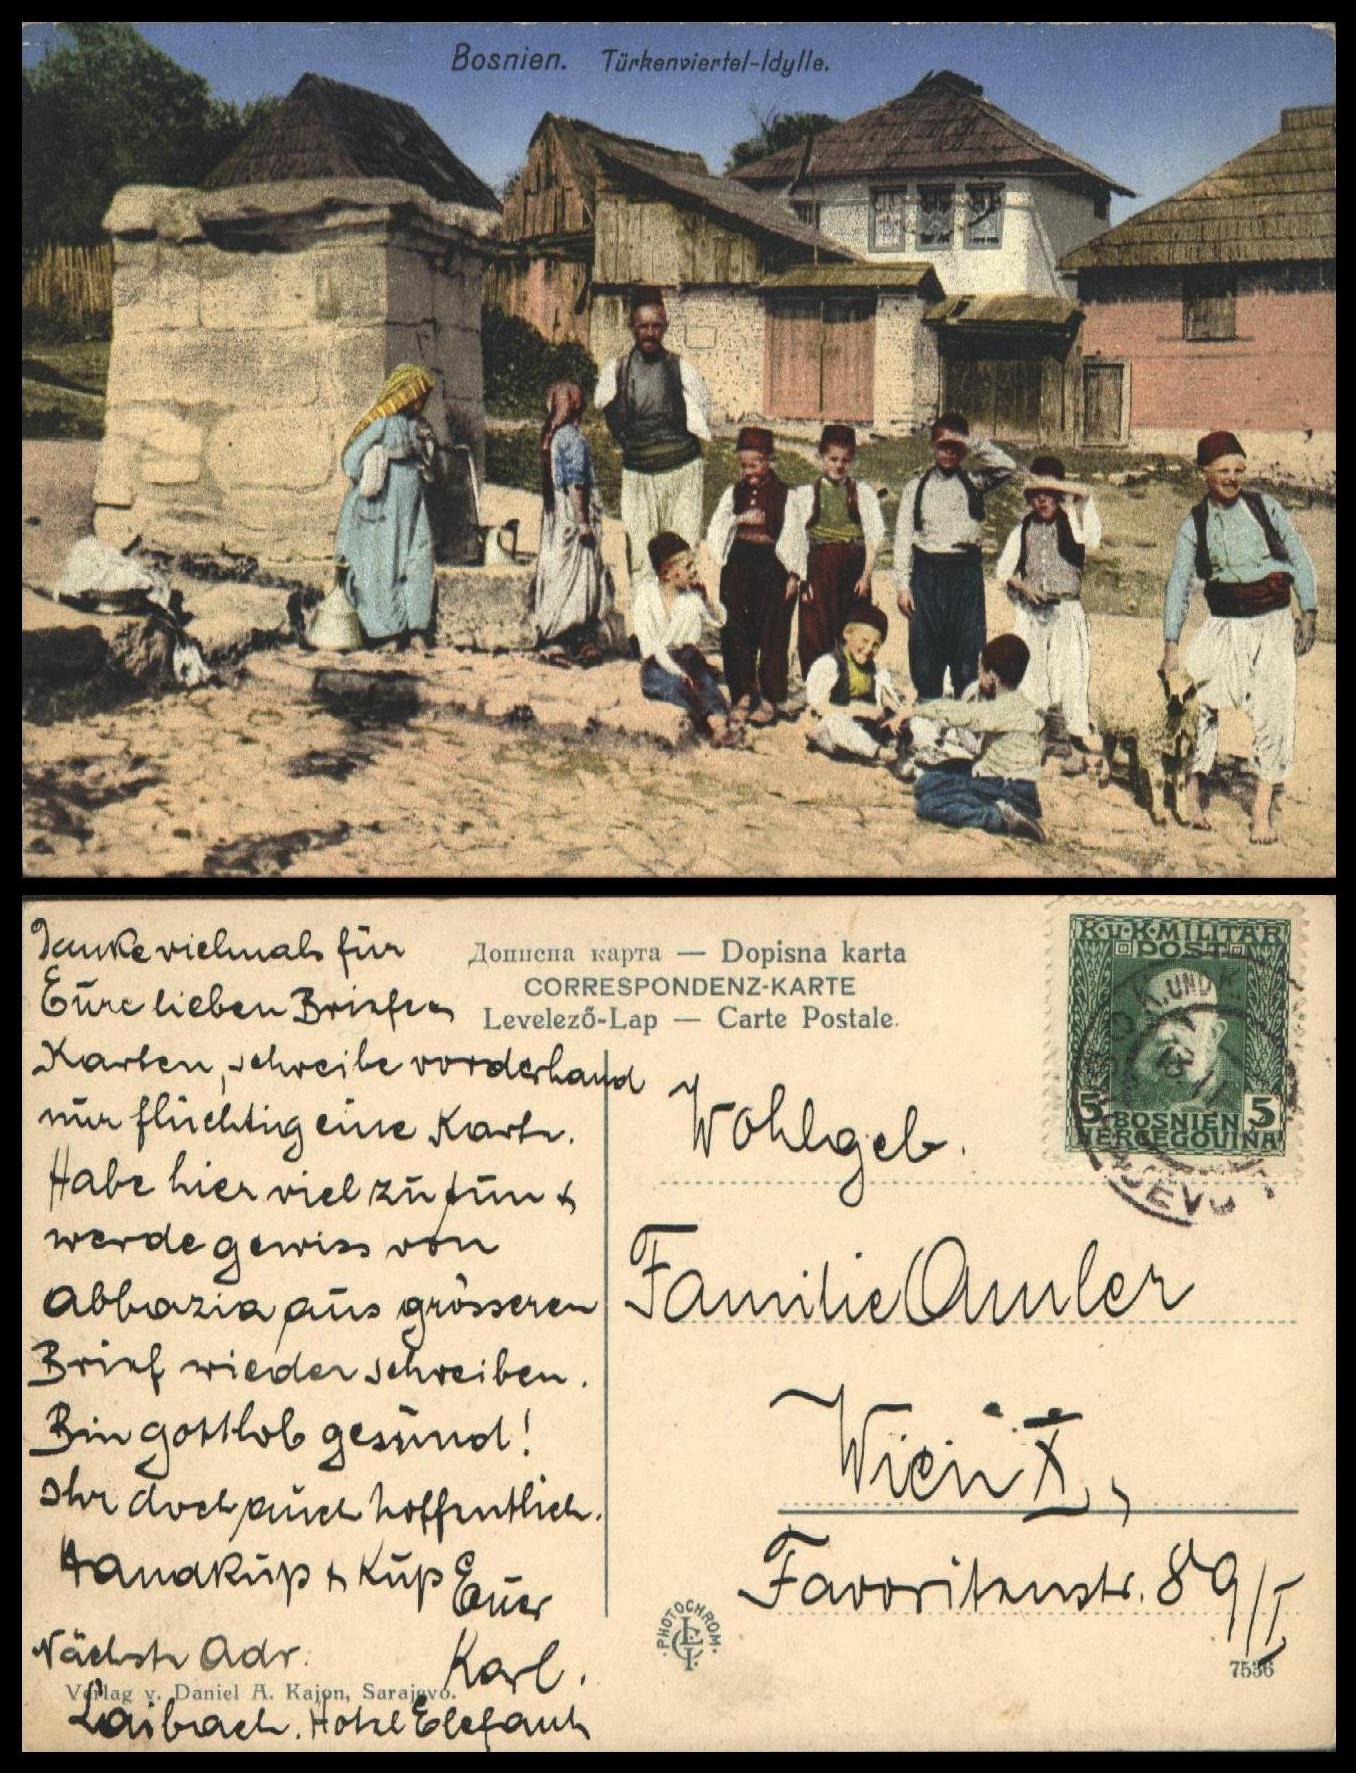 Bosnien. Türkenviertel-Idylle.
Danke vielmals für
Eure lieben Briefe &
Karten, schreibe vorderhand
nur flüchtig eine Karte.
Habe hier viel zu tun &
werde gewiss von
Abbazia aus grösseren
Brief wieder schreiben.
Bin gottlob gesund!
Ihr doch auch hoffentlich.
Handkuß & Kuß Euer
Karl.
Nächste Adr.
Laibach. Hotel Elefant
Verlag v. Daniel A. Kajon, Sarajevo.
Дописна карта — Dopisna karta
CORRESPONDENZ-KARTE
Levelező-Lap — Carte Postale.
K.u.K. MILITÄR
POST
5 BOSNIEN 5
HERCEGOVINA
K. UND K.
Wohlgeb.
Familie Amler
Wien X,
Favoritenstr. 89/I
PHOTOCHROM
7536